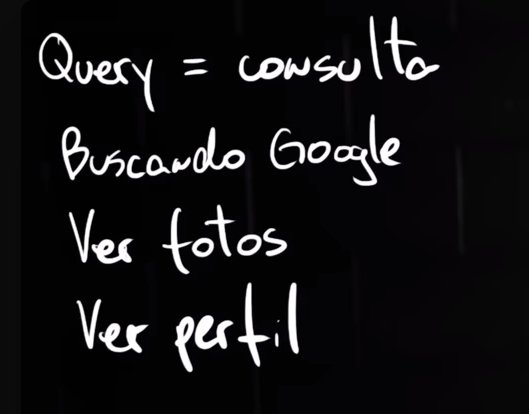 Query = consulta
Buscando Google
Ver fotos
Ver perfil